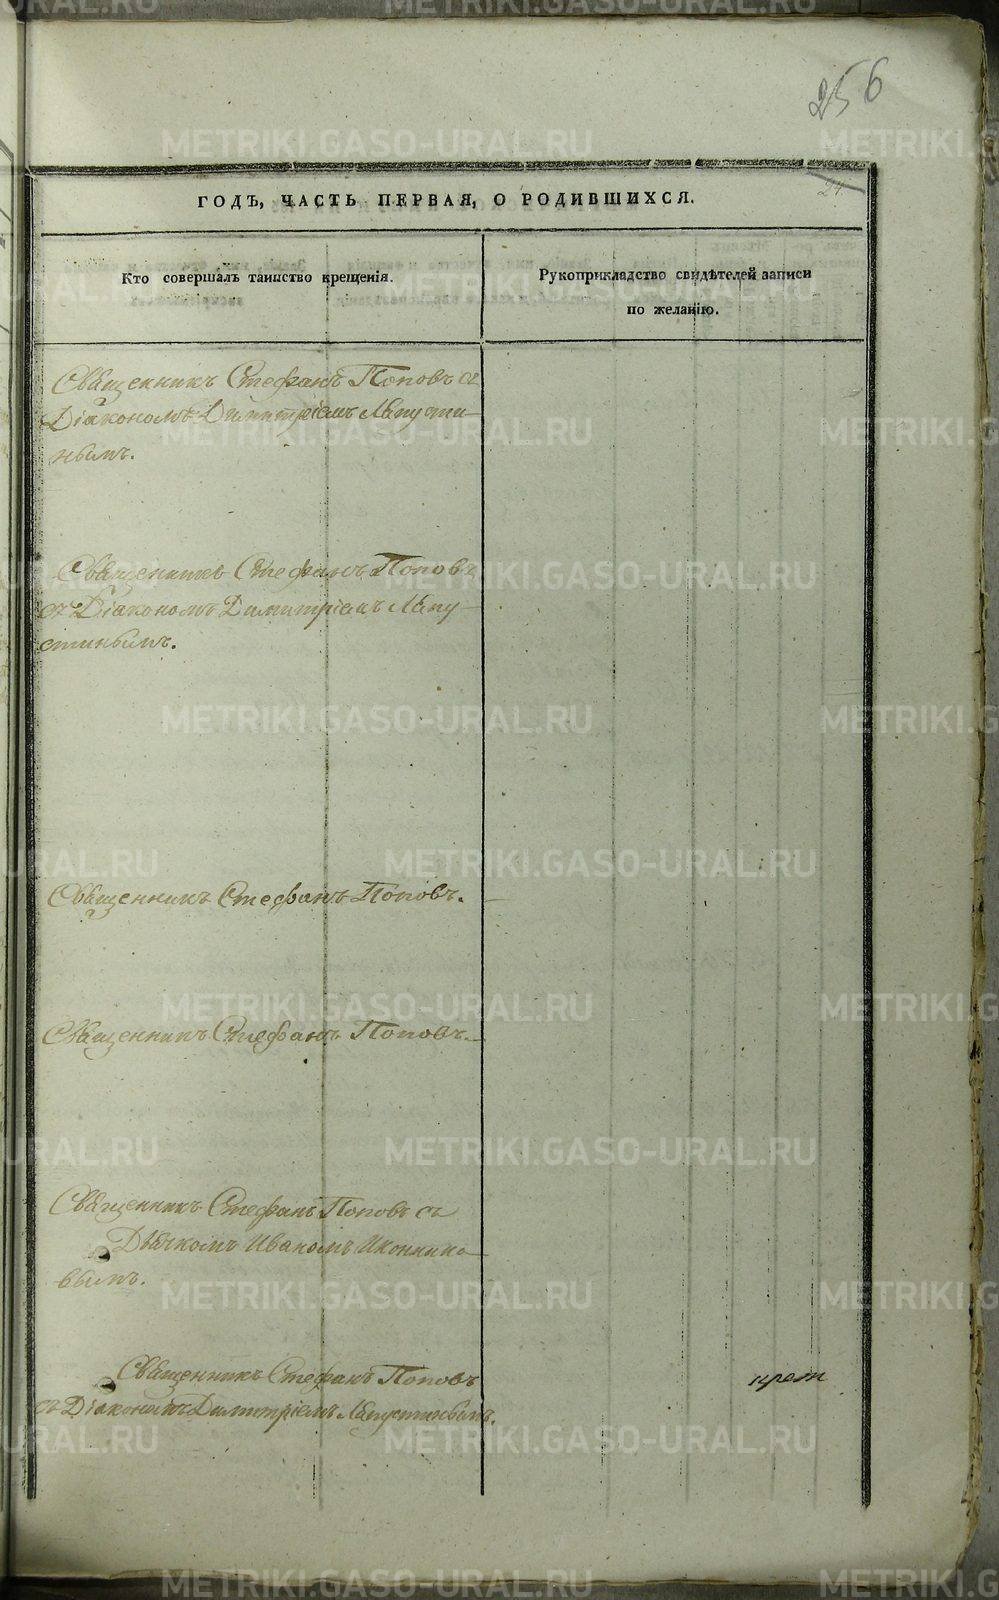 256
24
ГОДЪ, ЧАСТЬ ПЕРВАЯ, О РОДИВШИХСЯ.
Кто совершалъ таинство крещенія.
Рукоприкладство свидѣтелей записи
по желанію.
Священникъ Стефанъ Поповъ съ
Діакономъ Димитріемъ Лапусти-
нымъ.
Священникъ Стефанъ Поповъ
съ Діакономъ Димитріемъ Лапу-
стинымъ.
Священникъ Стефанъ Поповъ.
Священникъ Стефанъ Поповъ.
Священникъ Стефанъ Поповъ съ
Дьячкомъ Иваномъ Иконнико-
вымъ.
Священникъ Стефанъ Поповъ
съ Діакономъ Димитріемъ Лапустинымъ.
METRIKI.GASO-URAL.RU